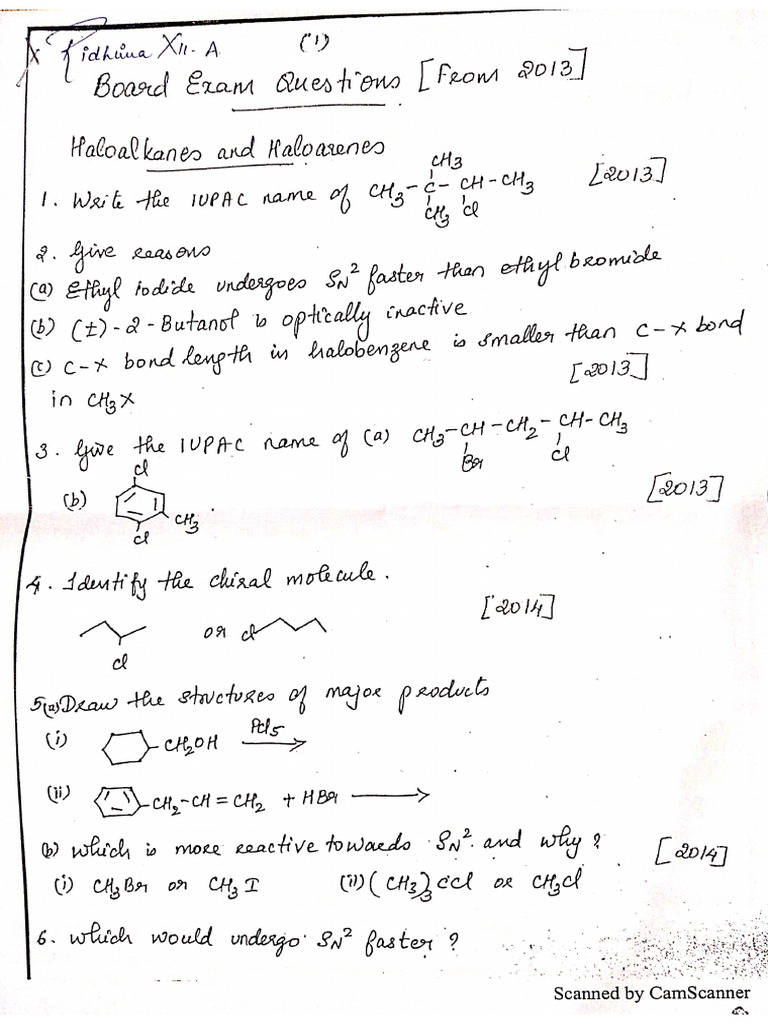 Ridhuna XII-A. (1)
Board Exam Questions [From 2013]
Haloalkanes and Haloarenes
CH3
1. Write the IUPAC name of CH3-C-CH-CH3 [2013]
CH3 Cl
2. Give reasons
(a) Ethyl iodide undergoes SN2 faster than ethyl bromide
(b) (±)-2-Butanol is optically inactive
(c) C-X bond length in halobenzene is smaller than C-X bond
[2013]
in CH3X
3. Give the IUPAC name of (a) CH3-CH-CH2-CH-CH3
Br Cl
Cl
(b) [2013]
CH3
Cl
4. Identify the chiral molecule.
[2014]
or Cl
Cl
5(a) Draw the structures of major products
(i) CH2OH PCl5
(ii) CH2-CH=CH2 + HBr
(b) Which is more reactive towards SN2 and why? [2014]
(i) CH3Br or CH3I (ii) (CH3)3CCl or CH3Cl
6. Which would undergo SN2 faster?
Scanned by CamScanner